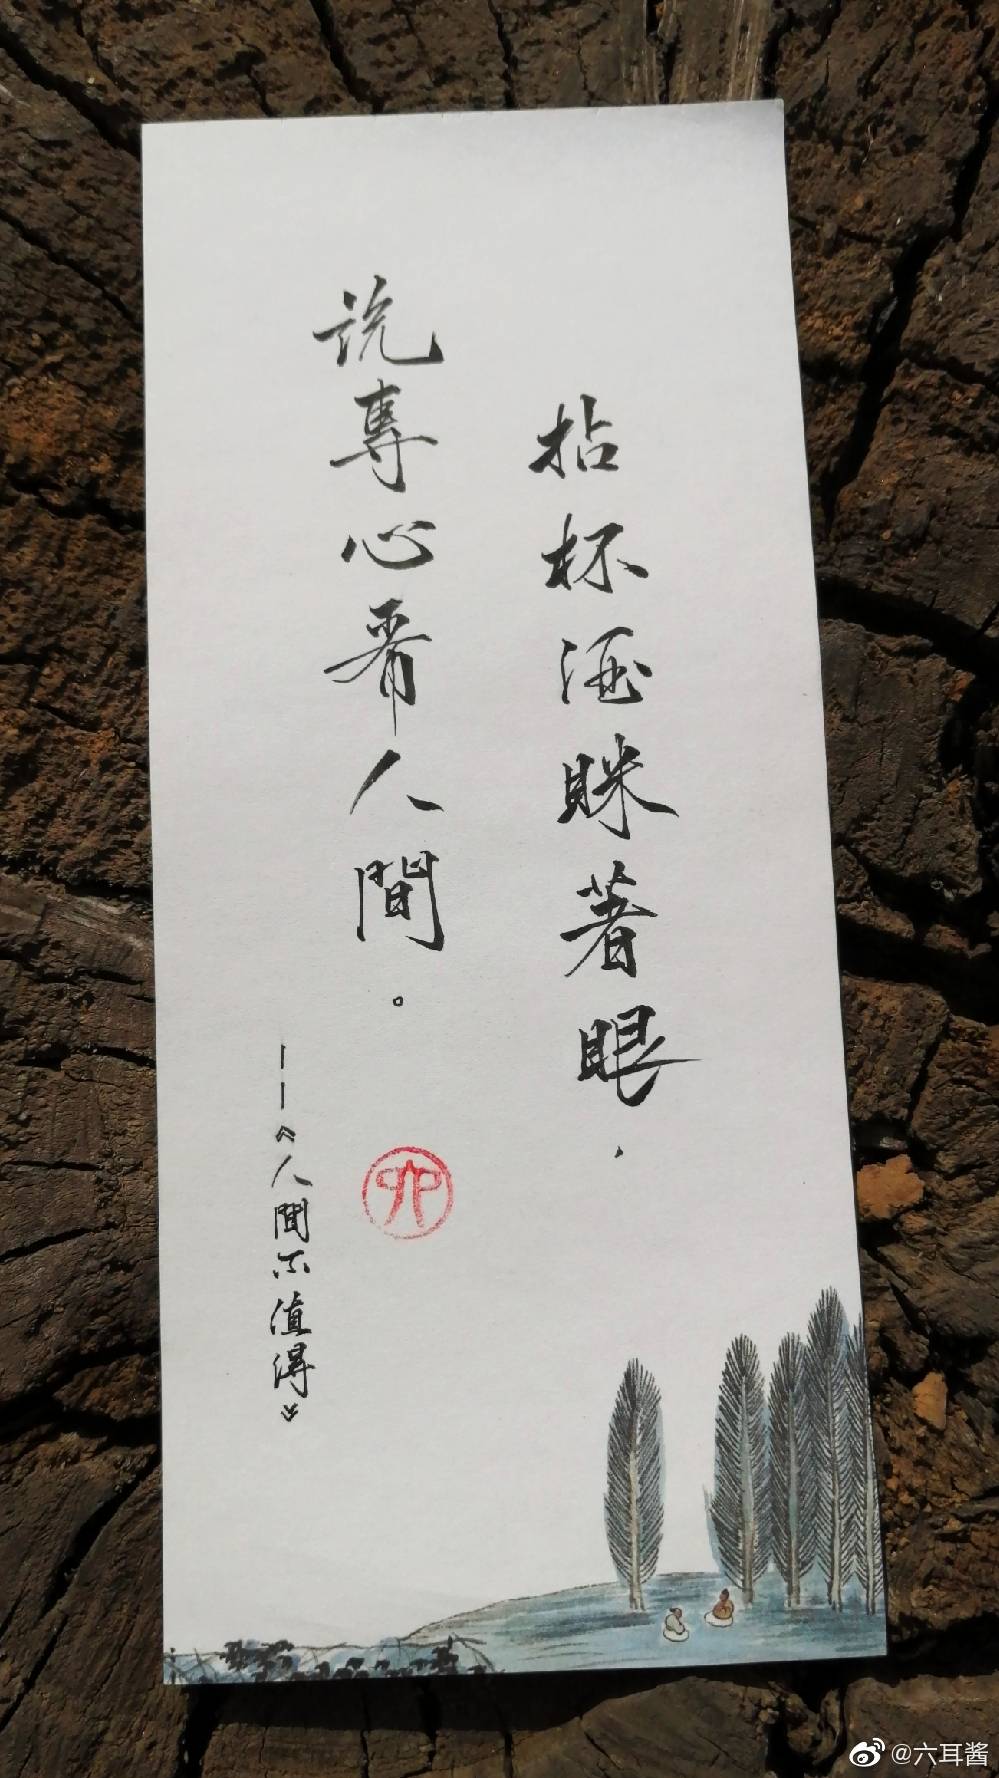 拈杯酒眯著眼，
说專心看人間。
——《人間不值得》
六
@六耳酱